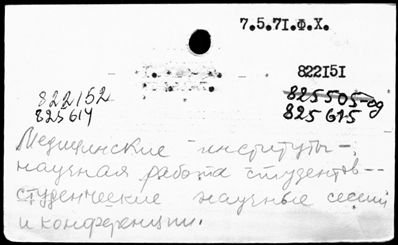 7.5.71.Ф.Х.
822151
822152
825505-од
825614
825615
Медицинские институты -
научная работа студентов --
студенческие научные сессии
и конференции.